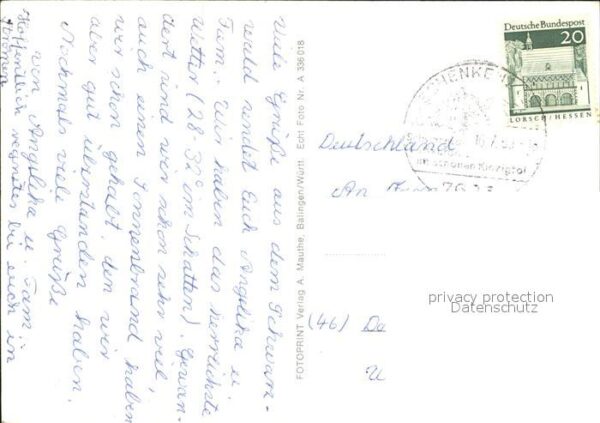 Viele Grüße aus dem Schwarz-
wald sendet Euch Angelika u.
Fam. Wir haben das herrlichste
Wetter (28-32° im Schatten). Gewan-
dert sind wir schon sehr viel,
auch einen Sonnenbrand haben
wir schon gehabt, den wir
aber gut überstanden haben.
Nochmals viele Grüße
von Angelika u. Fam.
Hoffentlich regnet es bei euch in
FOTOPRINT Verlag A. Mauthe, Balingen/Württ. Echt Foto Nr. A 336 018
Deutsche Bundespost
20
LORSCH/HESSEN
SCHENKE
im schönen Kinzigtal
Deutschland
An
(46) Do
U
privacy protection
Datenschutz